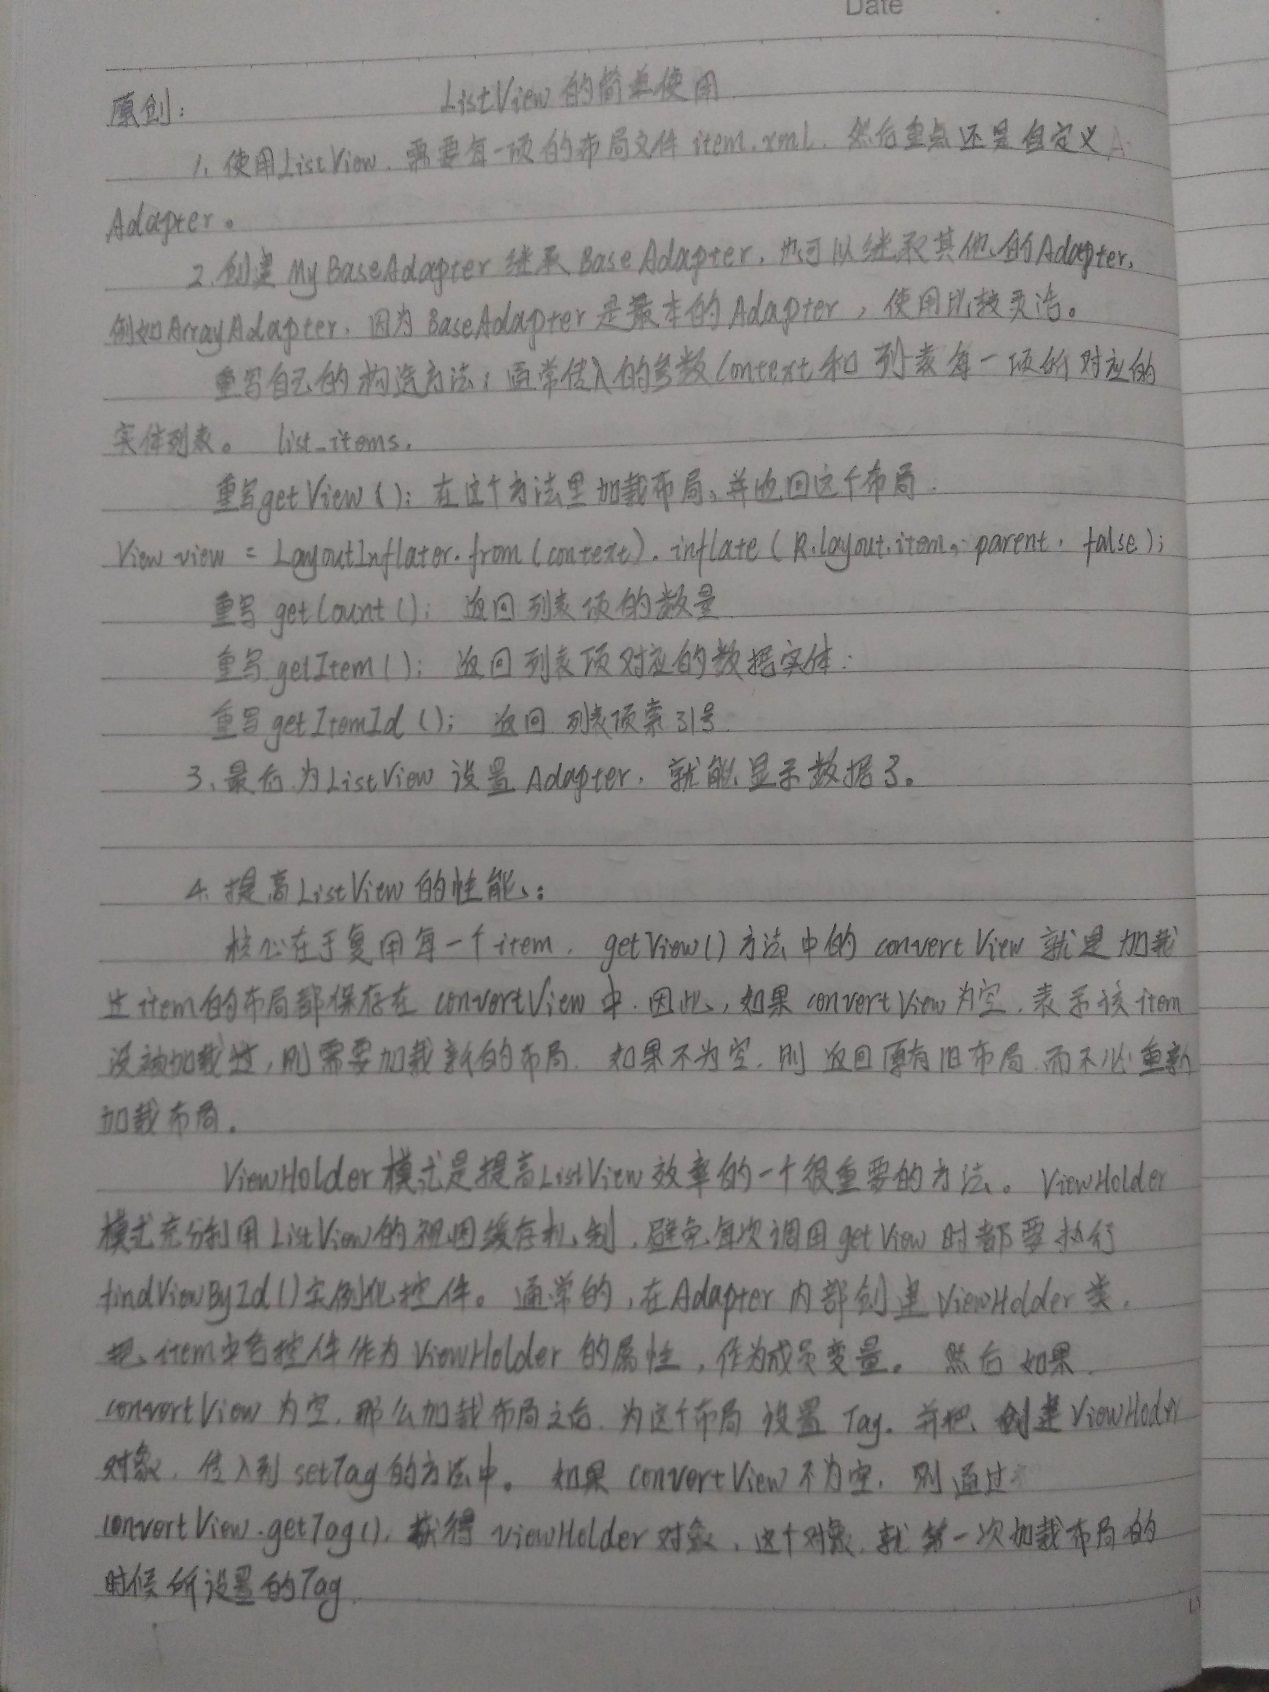 Date
原创: ListView的简单使用
1、使用ListView、需要每一项的布局文件item.xml、然后重点还是自定义
Adapter。
2、创建MyBaseAdapter继承BaseAdapter，也可以继承其他的Adapter，
例如ArrayAdapter、因为BaseAdapter是最本的Adapter，使用比较灵活。
重写自己的构造方法；通常传入的参数Context和列表每一项所对应的
实体列表。 list_items.
重写getView(); 在这个方法里加载布局，并返回这个布局.
View view = LayoutInflater.from(context).inflate(R.layout.item, parent, false);
重写getCount(); 返回列表项的数量
重写getItem(); 返回列表项对应的数据实体:
重写getItemId(); 返回列表项索引号
3、最后为ListView设置Adapter、就能显示数据了。
4. 提高ListView的性能:
核心在于复用每一个item. getView()方法中的convertView就是加载
过item的的布局都保存在convertView中.因此，如果convertView为空、表示该item
没被加载过，则需要加载新的布局. 如果不为空、则返回原有旧布局、而不必重新
加载布局。
ViewHolder模式是提高ListView效率的一个很重要的方法。ViewHolder
模式充分利用ListView的视图缓存机制，避免每次调用getView时都要执行
findViewById()实例化控件。通常的，在Adapter内部创建ViewHolder类，
把item中各控件作为ViewHolder的属性，作为成员变量。然后如果
convertView为空、那么加载布局之后、为这个布局设置Tag。并把创建ViewHodler
对象、传入到setTag的方法中。如果convertView不为空、则通过
convertView.getTag()、获得viewHolder对象、这个对象、就第一次加载布局的
时候所设置的Tag.